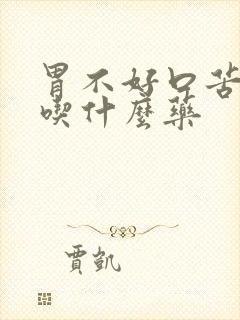 胃不好口苦
喫什麼藥
賈凱